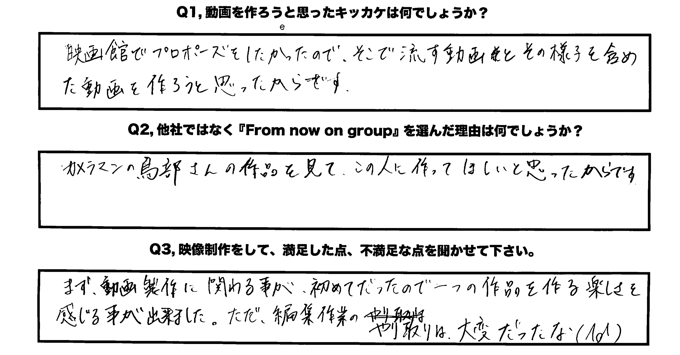 Q1, 動画を作ろうと思ったキッカケは何でしょうか？
映画館でプロポーズをしたかったので、そこで流す動画とその様子を含め
た動画を作ろうと思ったからです。
Q2, 他社ではなく『From now on group』を選んだ理由は何でしょうか？
カメラマンの鳥部さんの作品を見て、この人に作ってほしいと思ったからです
Q3, 映像制作をして、満足した点、不満足な点を聞かせて下さい。
まず、動画製作に関わる事が、初めてだったので一つの作品を作る楽しさを
感じる事が出来ました。ただ、編集作業の
やり取りは、大変だったな